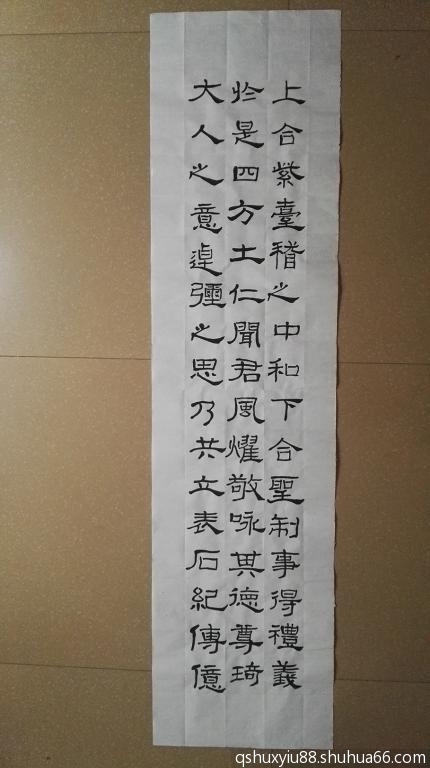 上合紫臺稽之中和下合聖制事得禮義
扵是四方土仁聞君風燿敬咏其德尊琦
大人之意逴彊之思乃共立表石紀傳億
qshuxyiu88.shuhua66.com